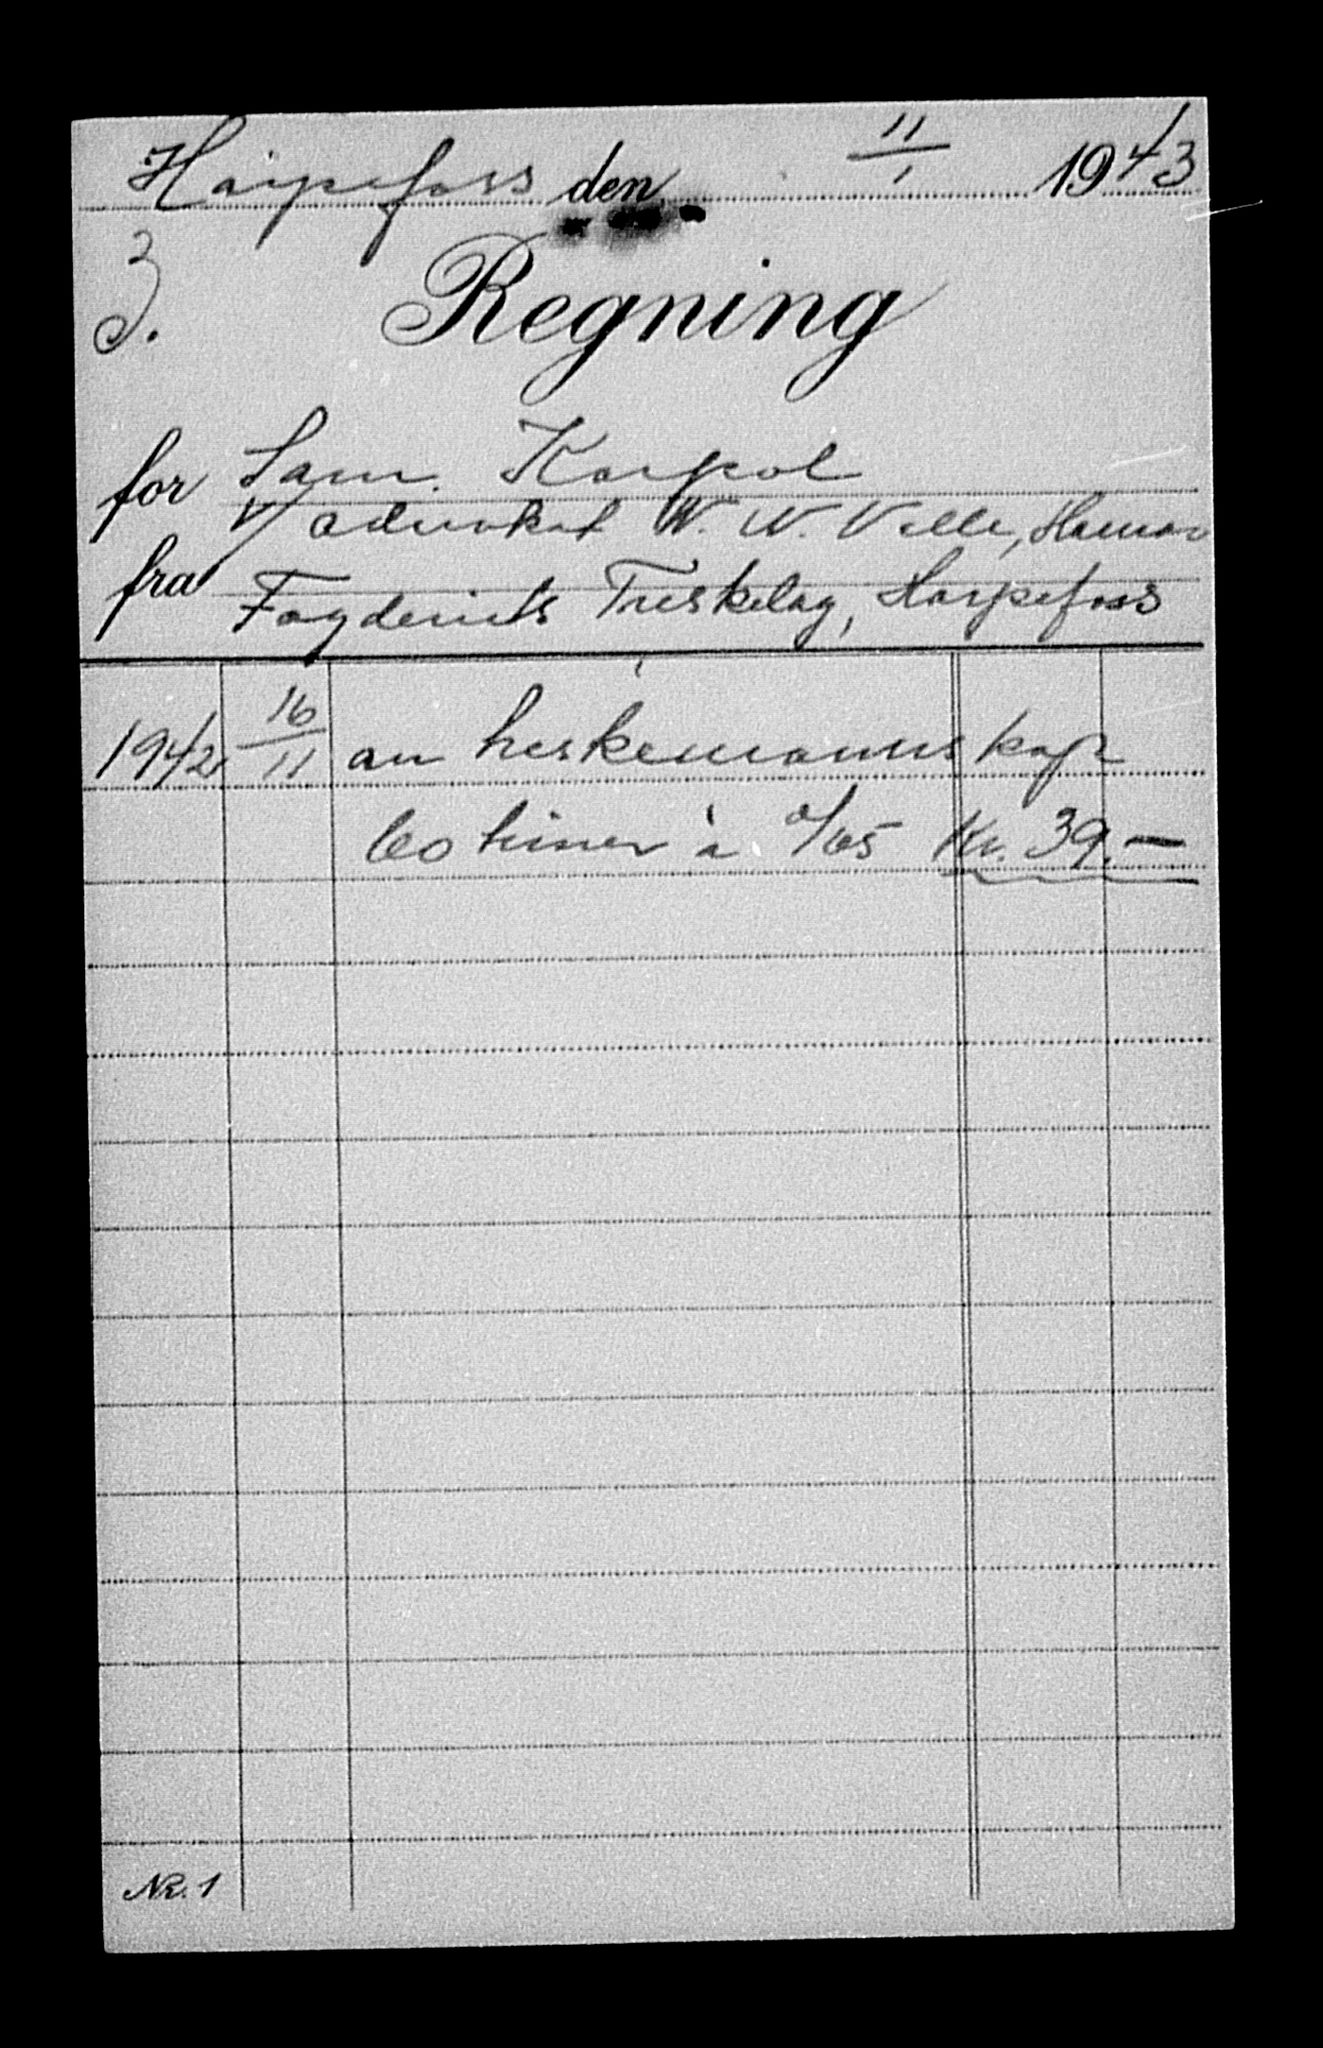 Harpefoss den 11/1 1943
3.
Regning
for Sam. Karpol
v/ advokat W. W. Velle, Hamar
fra Fagderiets Treskelag, Harpefoss
1942 16/11 an treskemannskap
60 timer à o/65 Kr. 39.—
NR. 1